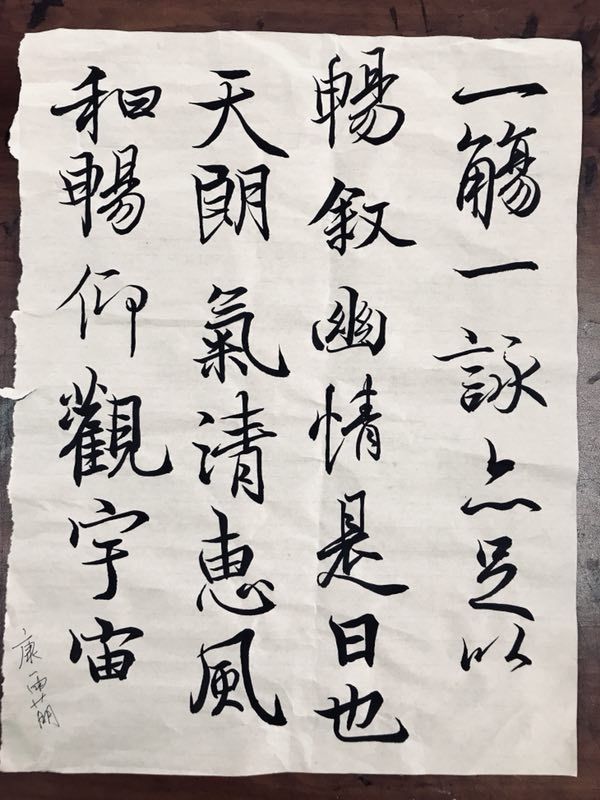 一觴一詠亦足以
暢叙幽情是日也
天朗氣清惠風
和暢仰觀宇宙
康雨萌